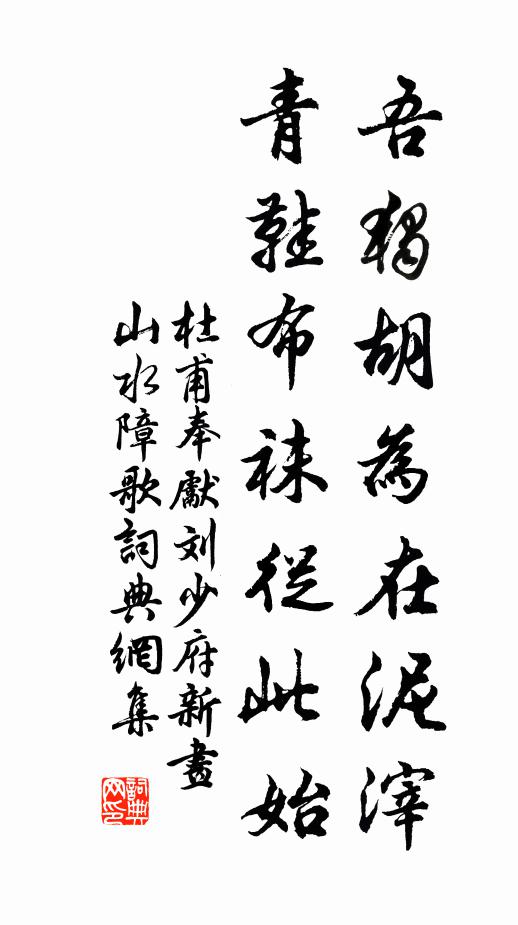 吾獨胡為在泥滓
青鞋布袜從此始
杜甫奉獻刘少府新畫
山水障歌詞典網集
詞典
网印